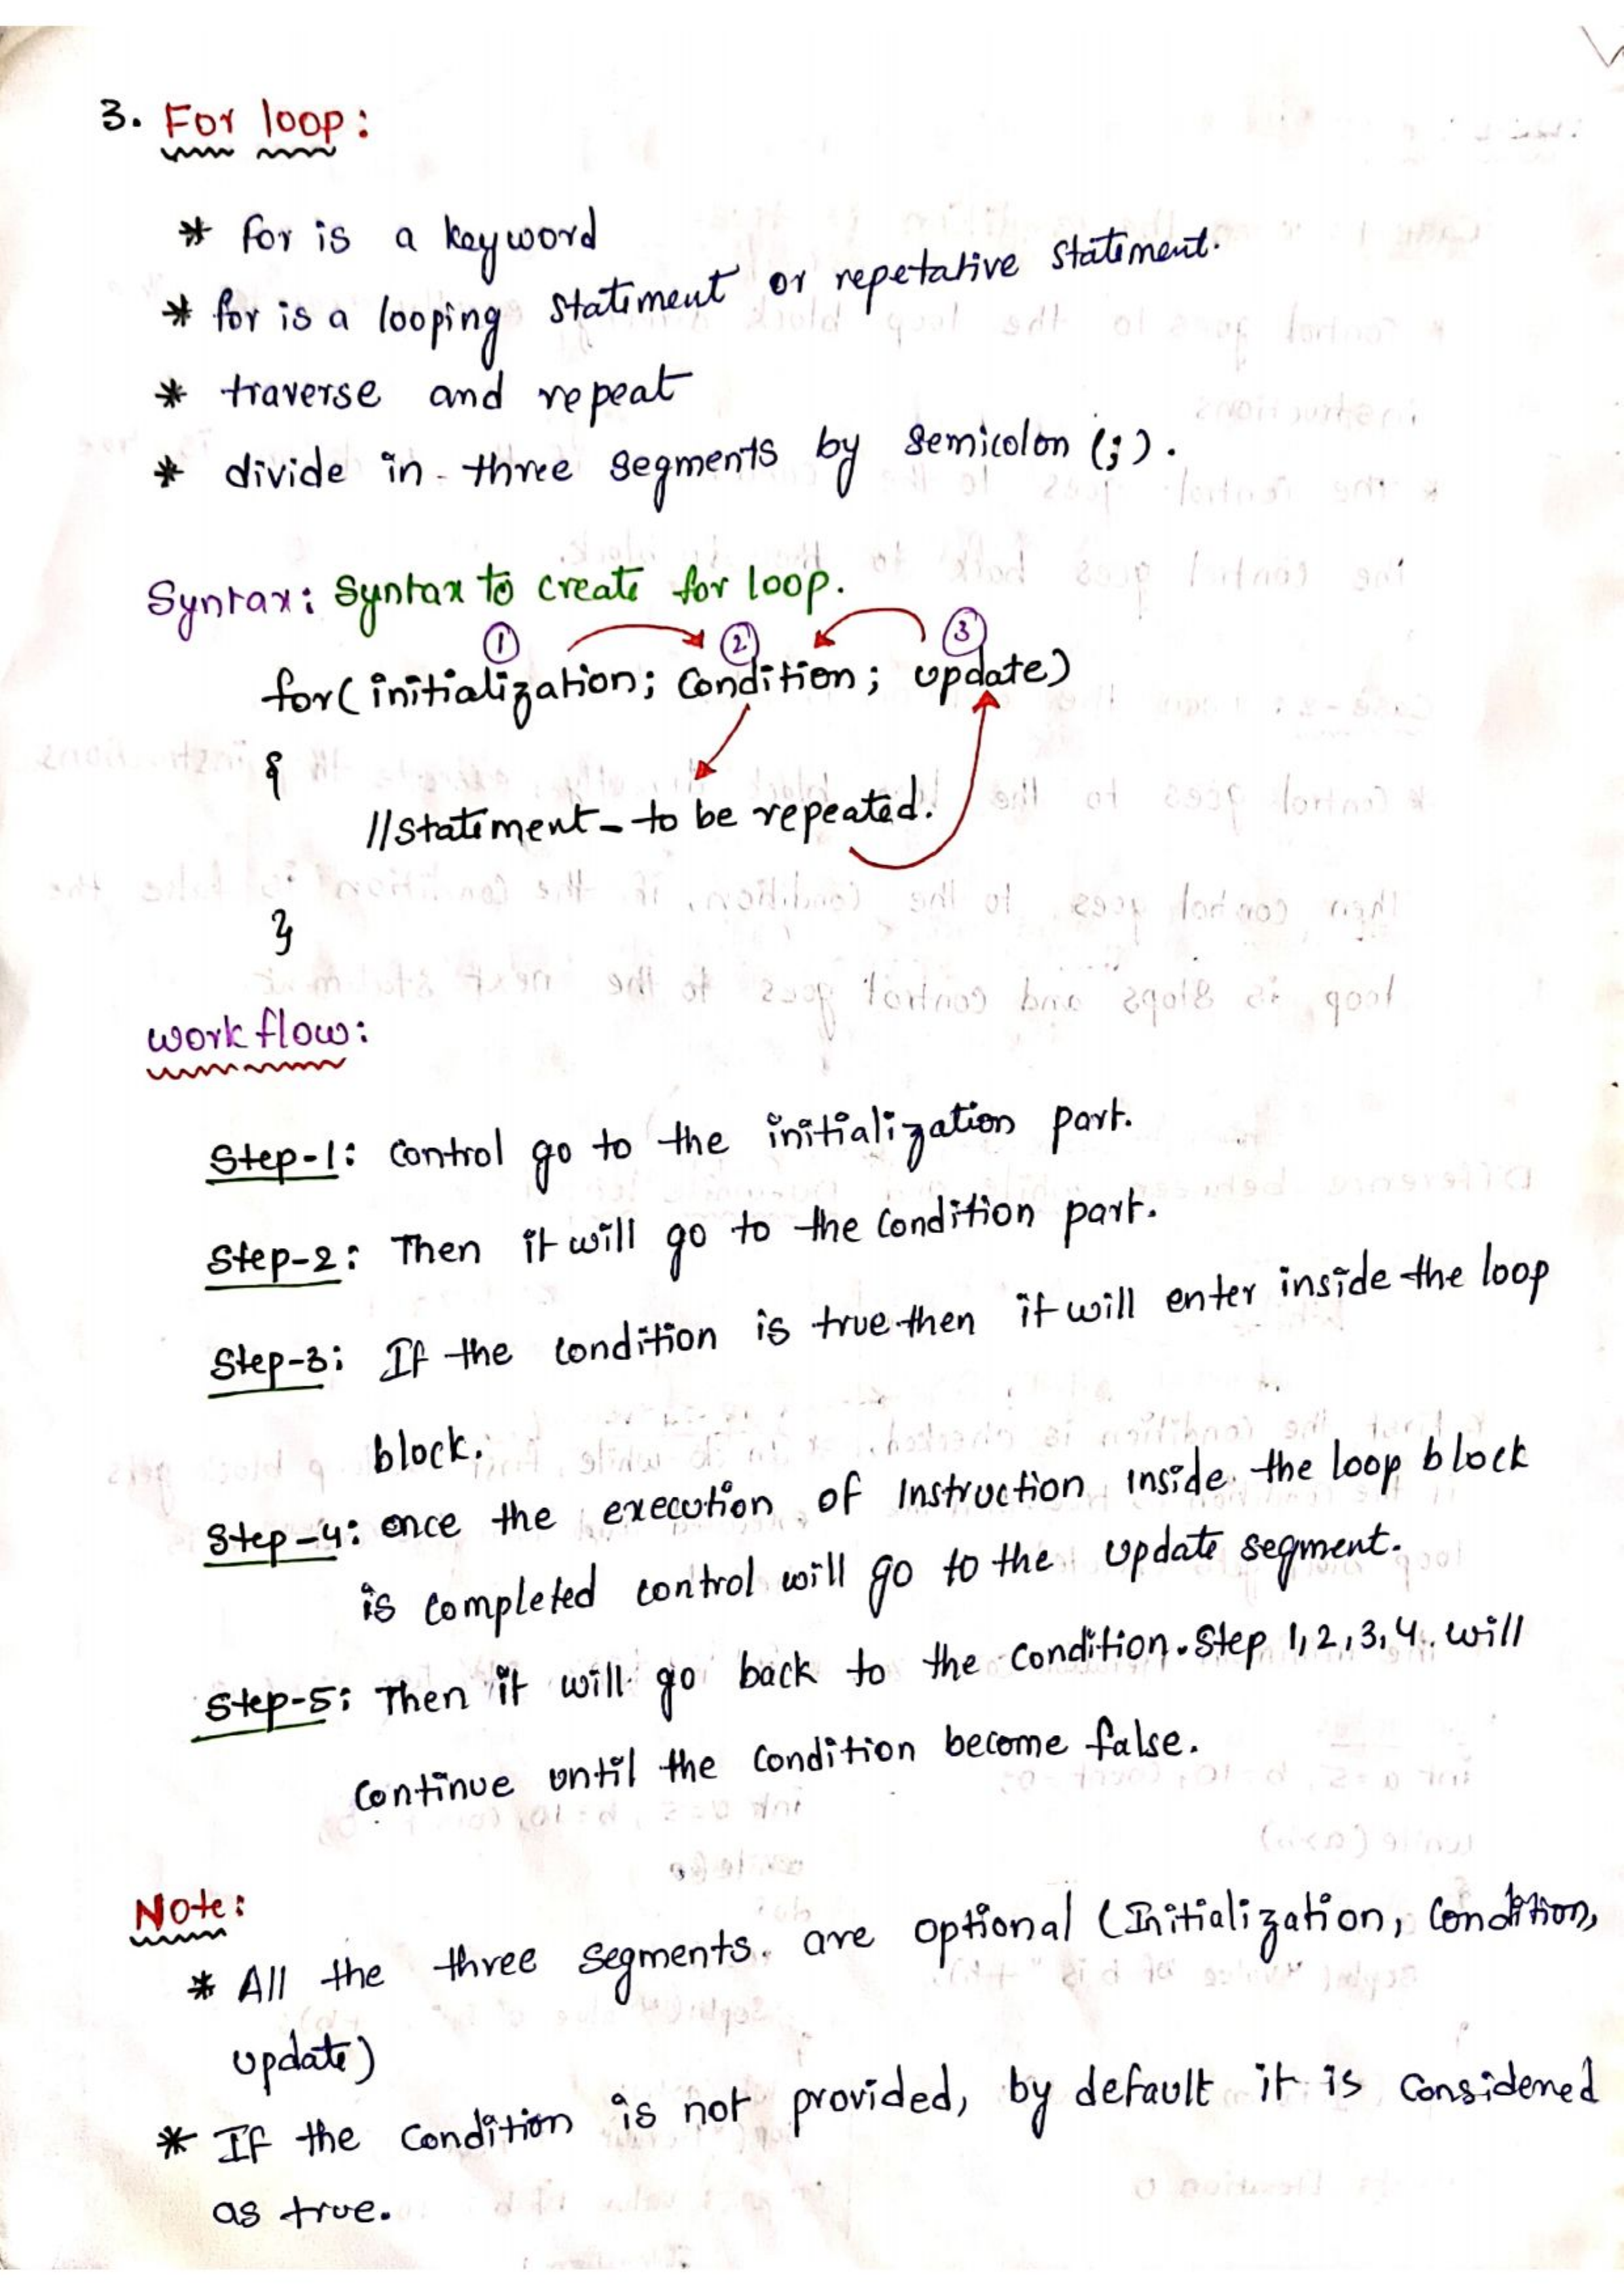 3. For loop:
* for is a keyword
* for is a looping statement or repetative statement.
* traverse and repeat
* divide in three segments by semicolon (;).
Syntax: Syntax to create for loop.
1 2 3
for(initialization; Condition; update)
{
//statement - to be repeated.
}
work flow:
Step-1: Control go to the initialization part.
Step-2: Then it will go to the Condition part.
Step-3: If the condition is true then it will enter inside the loop
block.
Step-4: once the execution of Instruction inside the loop block
is completed control will go to the update segment.
Step-5: Then it will go back to the condition. Step 1,2,3,4. will
Continue until the Condition become false.
Note:
* All the three segments. are optional (Initialization, Condition,
update)
* If the Condition is not provided, by default it is Considened
as true.